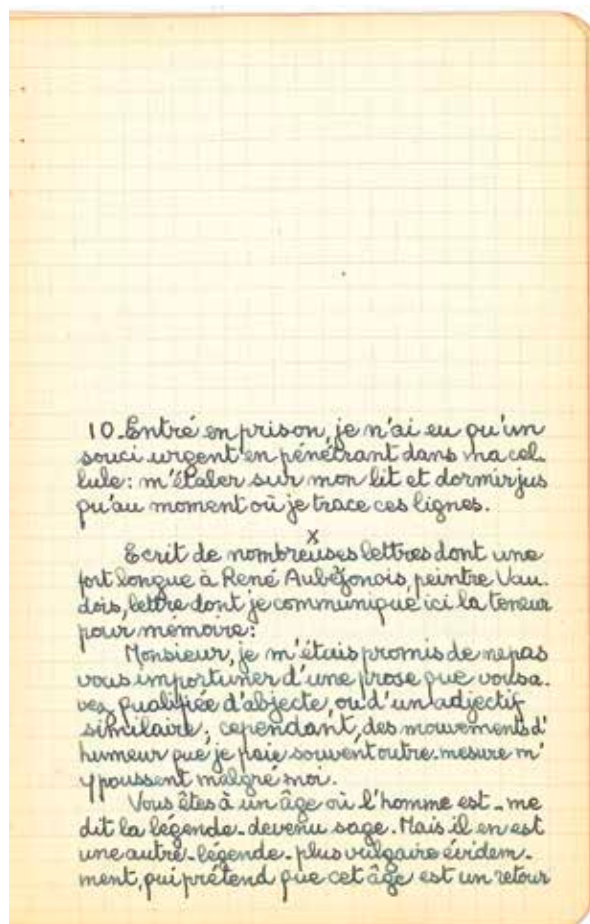 10_Entré en prison, je n'ai eu qu'un
souci urgent en pénétrant dans ma cel_
lule: m'étaler sur mon lit et dormir jus
qu'au moment où je trace ces lignes.
x
Ecrit de nombreuses lettres dont une
fort longue à René Aubejonois, peintre Vau_
dois, lettre dont je communique ici la teneur
pour mémoire:
Monsieur, je m'étais promis de ne pas
vous importuner d'une prose que vous a_
vez qualifiée d'abjecte, ou d'un adjectif
similaire; cependant, des mouvements d'
humeur que je paie souvent outre-mesure m'
y poussent malgré moi.
Vous êtes à un âge où l'homme est _ me
dit la légende _ devenu sage. Mais il en est
une autre _ légende _ plus vulgaire évidem_
ment, qui prétend que cet âge est un retour